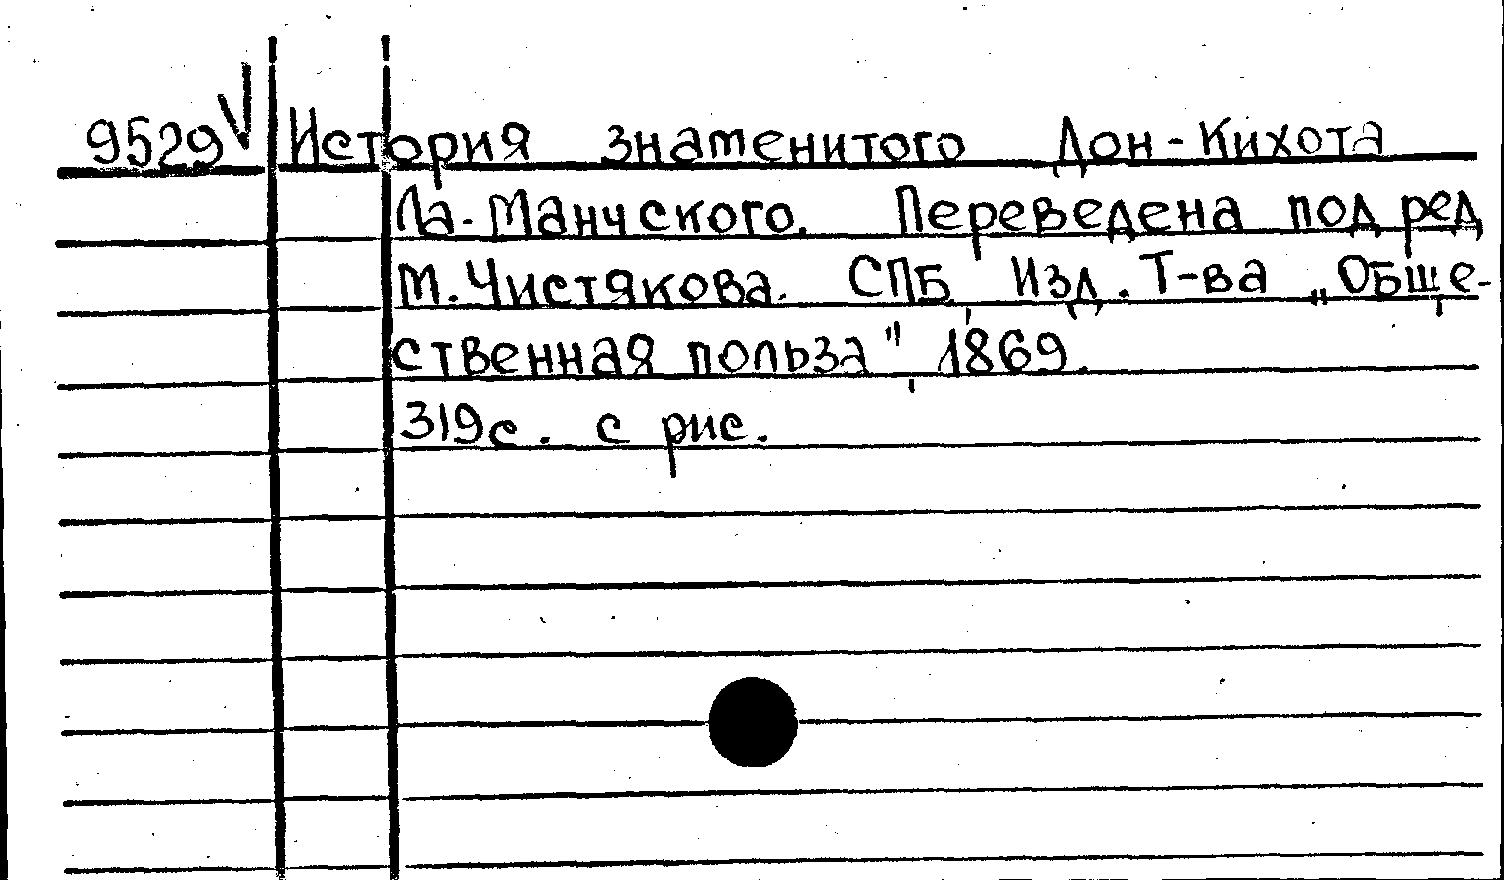 9529 V История знаменитого Дон-Кихота
Ла-Манчского. Переведена под ред
М. Чистякова. СПБ, Изд. Т-ва „Обще-
ственная польза", 1869.
319с. с рис.